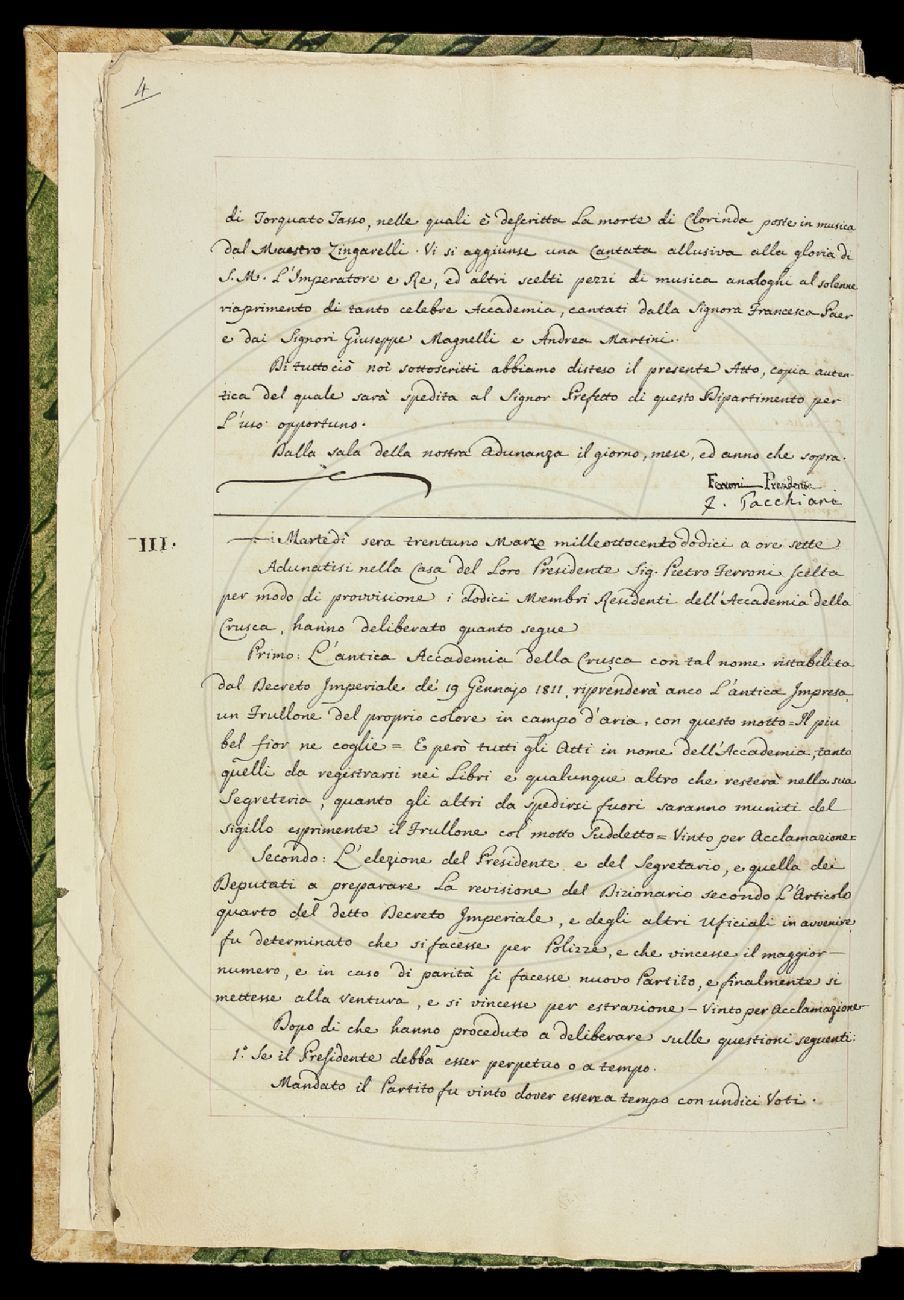 4
di Torquato Tasso, nelle quali è descritta la morte di Clorinda poste in musica
dal Maestro Zingarelli. Vi si aggiunse una Cantata allusiva alla gloria di
S. M. L'Imperatore e Re, ed altri scelti pezzi di musica analoghi al solenne
riaprimento di tanto celebre Accademia, cantati dalla Signora Francesca Paer
e dai Signori Giuseppe Magnelli e Andrea Martini.
Di tutto ciò noi sottoscritti abbiamo disteso il presente Atto, copia auten-
tica del quale sarà spedita al Signor Prefetto di questo Dipartimento per
L'uso opportuno.
Dalla sala della nostra Adunanza il giorno, mese, ed anno che sopra.
Ferroni Presidente
F. Sacchiani
III.
Martedì sera trentuno Marzo milleottocentododici a ore sette
Adunatisi nella Casa del Loro Presidente Sig. Pietro Ferroni scelta
per modo di provvisione i dodici Membri Residenti dell'Accademia della
Crusca, hanno deliberato quanto segue
Primo: L'antica Accademia della Crusca con tal nome ristabilita
dal Decreto Imperiale de' 19 Gennajo 1811, riprenderà anco L'antica Impresa
un Frullone del proprio colore in campo d'aria, con questo motto = Il piu
bel fior ne coglie = E però tutti gli Atti in nome dell'Accademia, tanto
quelli da registrarsi nei Libri e qualunque altro che resterà nella sua
Segreteria, quanto gli altri da spedirsi fuori saranno muniti del
sigillo esprimente il Frullone col motto Suddetto = Vinto per Acclamazione =
Secondo: L'elezione del Presidente e del Segretario, e quella dei
Deputati a preparare La revisione del Dizionario secondo L'Articolo
quarto del detto Decreto Imperiale, e degli altri Uficiali in avvenire
fu determinato che si facesse per Polizze, e che vincesse il maggior
numero, e in caso di parità si facesse nuovo Partito, e finalmente si
mettesse alla Ventura, e si vincesse per estrazione - Vinto per Acclamazione -
Dopo di che hanno proceduto a deliberare sulle questioni seguenti:
1.° Se il Presidente debba esser perpetuo o a tempo.
Mandato il Partito fu vinto dover essere a tempo con undici Voti.